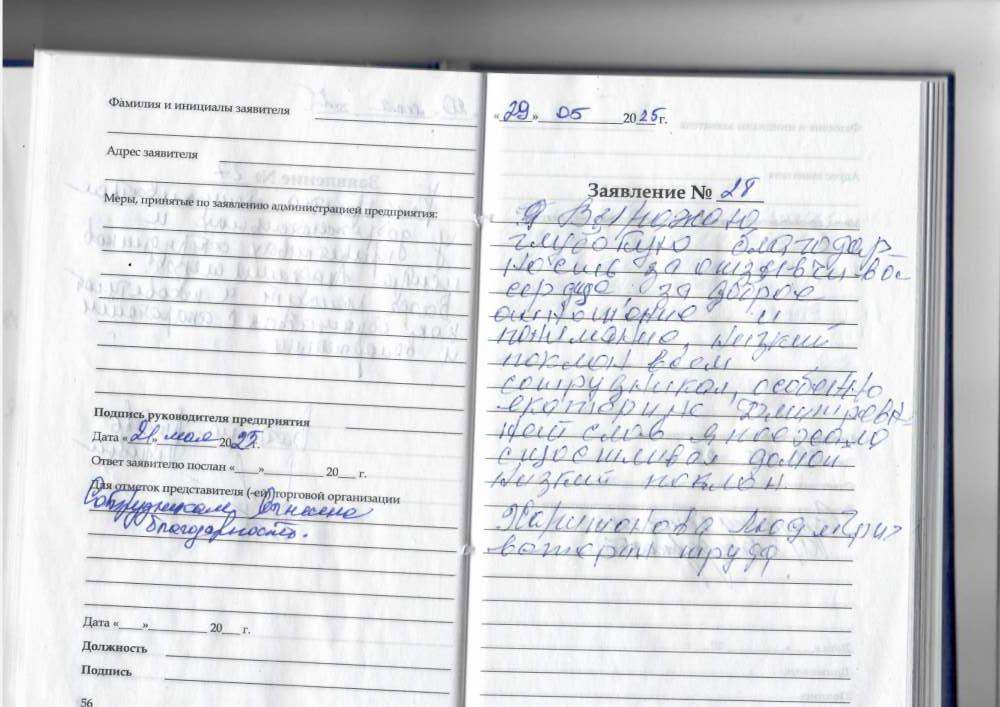 Фамилия и инициалы заявителя
Адрес заявителя
Меры, принятые по заявлению администрацией предприятия:
Подпись руководителя предприятия
Дата «21» мая 2025г.
Ответ заявителю послан «____»__________ 20___ г.
Для отметок представителя (-ей) торговой организации
Сотрудникам вынесена
благодарность.
Дата «____»__________ 20___ г.
Должность
Подпись
56
«29» 05 2025г.
Заявление № 28
Я Виражаю
глубокую благодар-
ность за
сердце за доброе
отношение и
понимание, низкий
поклон всем
сотрудникам, особенно
екатерине
слов я поехала
счастливая домой
низкий поклон
Харитонова
ветеран труда